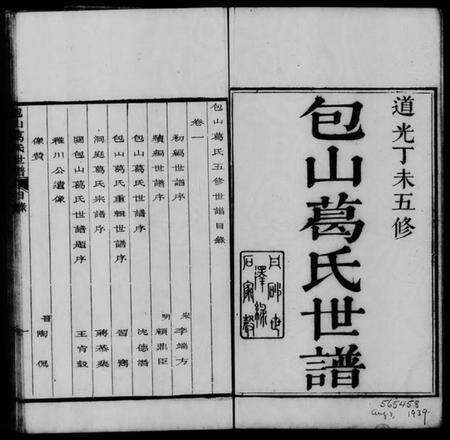 道光丁未五修
包山葛氏世譜
565458
Aug 3, 1939
包山葛氏五修世譜目錄
卷一
初編世譜序 宋 李端方
續編世譜序 明 顧鼎臣
包山葛氏世譜序 沈德潛
包山葛氏重輯世譜序
洞庭葛氏宗譜序 蔣恭棐
題包山葛氏世譜題序 王肯穀
稚川公遺像
像贊 晉 陶侃
包山葛氏世譜 目錄 一